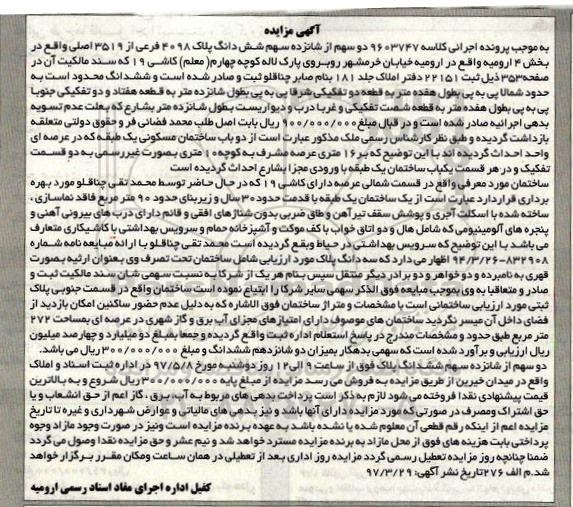 آگهی مزایده
به موجب پرونده اجرائی کلاسه ۹۶۰۳۷۴۷ دو سهم از شانزده سهم شش دانگ پلاک ۴۰۹۸ فرعی از ۳۵۱۹ اصلی واقع در
بخش ۴ ارومیه واقع در ارومیه خیابان خرمشهر روبروی پارک لاله کوچه چهارم( معلم) کاشی ۱۹ که سند مالکیت آن در
صفحه ۳۵۳ ذیل ثبت ۲۲۱۵۱ دفتر املاک جلد ۱۸۱ بنام صابر چناقلو ثبت و صادر شده است و ششدانگ محدود است به
حدود شمالا پی به پی بطول هفده متر به قطعه دو تفکیکی شرقا پی به پی بطول شانزده متر به قطعه هفتاد و دو تفکیکی جنوبا
پی به پی بطول هفده متر به قطعه شصت تفکیکی و غربا درب و دیواریست بطول شانزده متر بشارع که بعلت عدم تسویه
بدهی اجرائیه صادر شده است و در قبال مبلغ ۹۰۰/۰۰۰/۰۰۰ ریال بابت اصل طلب محمد فضائی فر و حقوق دولتی متعلقه
بازداشت گردیده و طبق نظر کارشناس رسمی ملک مذکور عبارت است از دو باب ساختمان مسکونی یک طبقه که در عرصه ای
واحد احداث گردیده اند با این توضیح که بر ۱۶ متری عرصه مشرف به کوچه ۱۰ متری بصورت غیررسمی به دو قسمت
تفکیک و در هر قسمت یکباب ساختمان یک طبقه با ورودی مجزا بشارع احداث گردیده است
ساختمان مورد معرفی واقع در قسمت شمالی عرصه دارای کاشی ۱۹ که در حال حاضر توسط محمد تقی چناقلو مورد بهره
برداری قرار دارد عبارت است از یک ساختمان یک طبقه با قدمت حدود ۳۰ سال و زیربنای حدود ۹۰ متر مربع فاقد نماسازی ،
ساخته شده با اسکلت آجری و پوشش سقف تیرآهن و طاق ضربی بدون شناژهای افقی و قائم دارای درب های بیرونی آهنی و
پنجره های آلومینیومی که شامل هال و دو اتاق خواب با کف موکت و آشپزخانه حمام و سرویس بهداشتی با کاشیکاری متعارف
می باشد با این توضیح که سرویس بهداشتی در حیاط وقع گردیده است محمد تقی چناقلو با ارائه مبایعه نامه شماره
۸۳۲۹۰۸-۹۴/۳/۲۶ اظهار می دارد که سه دانگ پلاک مورد ارزیابی شامل ساختمان تحت تصرف وی بعنوان ارثیه بصورت
قهری به نامبرده و دو خواهر و دو برادر دیگر منتقل سپس بنام هر یک از شرکا به نسبت سهمی شان سند مالکیت ثبت و
صادر و متعاقبا به وی بموجب مبایعه فوق الذکر سهمی سایر شرکا را ابتیاع نموده است ساختمان واقع در قسمت جنوبی پلاک
ثبتی مورد ارزیابی ساختمانی است با مشخصات و متراژ ساختمان فوق الاشاره که به دلیل عدم حضور ساکنین امکان بازدید از
فضای داخل آن میسر نگردید ساختمان های موصوف دارای امتیازهای مجزای آب برق و گاز شهری در عرصه ای بمساحت ۲۷۲
متر مربع طبق حدود و مشخصات مندرج در پاسخ استعلام اداره ثبت واقع گردیده و جمعا بمبلغ دو میلیارد و چهارصد میلیون
ریال ارزیابی و برآورد شده است که سهمی بدهکار بمیزان دو شانزدهم ششدانگ و مبلغ ۳۰۰/۰۰۰/۰۰۰ ریال می باشد.
دو سهم از شانزده سهم ششدانگ پلاک فوق از ساعت ۹ الی ۱۲ روز دوشنبه مورخ ۹۷/۵/۸ در اداره ثبت اسناد و املاک
واقع در میدان خیرین از طریق مزایده به فروش می رسد مزایده از مبلغ پایه ۳۰۰/۰۰۰/۰۰۰ ریال شروع و به بالاترین
قیمت پیشنهادی نقدا فروخته می شود لازم به ذکر است پرداخت بدهی های مربوط به آب ، برق ، گاز اعم از حق انشعاب و یا
حق اشتراک ومصرف در صورتی که مورد مزایده دارای آنها باشد و نیز بدهی های مالیاتی و عوارض شهرداری و غیره تا تاریخ
مزایده اعم از اینکه رقم قطعی آن معلوم شده یا نشده باشد به عهده برنده مزایده است ونیز در صورت وجود مازاد وجوه
پرداختی بابت هزینه های فوق از محل مازاد به برنده مزایده مسترد خواهد شد و نیم عشر و حق مزایده نقدا وصول می گردد
ضمنا چنانچه روز مزایده تعطیل رسمی گردد مزایده روز اداری بعد از تعطیلی در همان ساعت ومکان مقرر برگزار خواهد
شد.م الف ۲۷۶ تاریخ نشر آگهی: ۹۷/۳/۲۹
کفیل اداره اجرای مفاد اسناد رسمی ارومیه